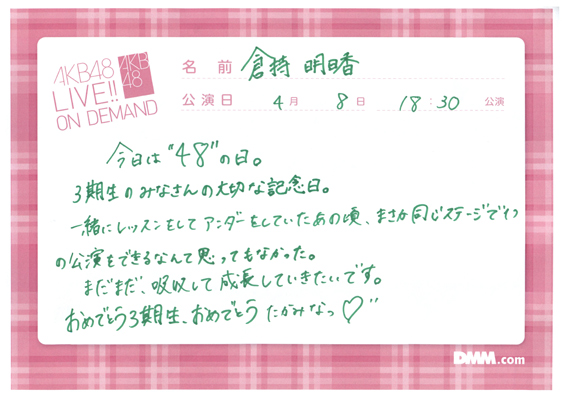 AKB48
LIVE!!
ON DEMAND
AKB
48
名前 倉持 明日香
公演日 4月 8日 18:30 公演
今日は"48"の日。
3期生のみなさんの大切な記念日。
一緒にレッスンをしてアンダーをしていたあの頃、まさか同じステージで1つ
の公演をできるなんて思ってもなかった。
まだまだ、吸収して成長していきたいです。
おめでとう3期生、おめでとうたかみなっ♡"
DMM.com